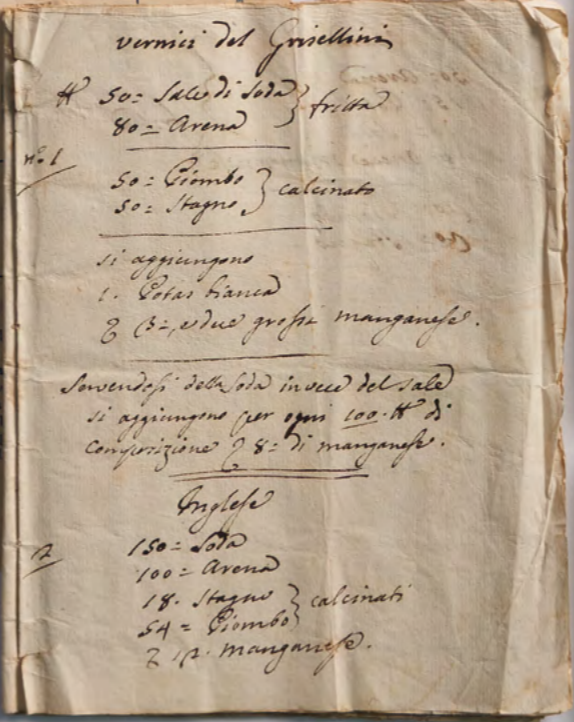 vernici del Grisellini
℔ 50= Sale di Soda } fritta
80= Arena
n.o 1
50= Piombo } calcinato
50= Stagno
si aggiungono
1. Potas bianca
℥ 3=, e due grossi manganese.
Servendosi della Soda invece del sale
si aggiungono per ogni 100. ℔ di
composizione ℥ 8= di manganese.
Inglese
2
150= Soda
100= Arena
18. Stagno } calcinati
54= Piombo
℥ 12. manganese.